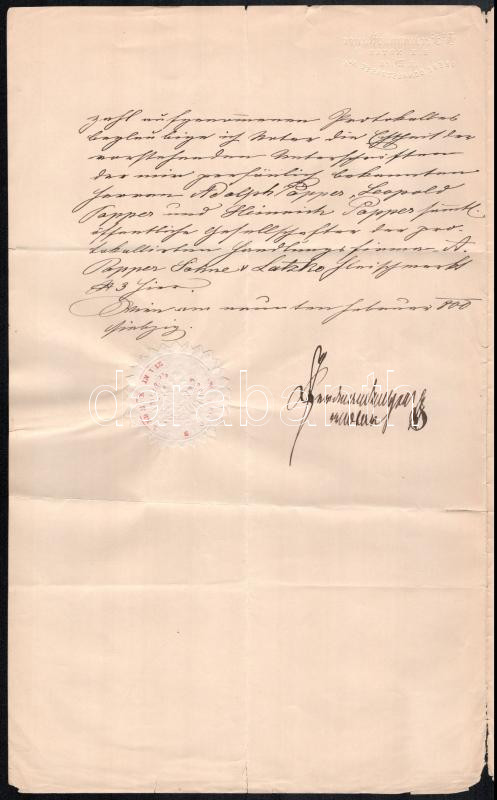 zahl aufgenommenen Protokolles
beglaubige ich Notar die Echtheit der
vorstehenden Unterschriften
der mir persönlich bekannten
Herren Adolph Popper, Leopold
Popper und Heinrich Popper sämtl.
öffentliche Gesellschafter der pro-
tokollirten Handlungsfirma A.
Popper Söhne & Latzko Fleischmarkt
#3 hier.
Wien am neunten Februar 800
siebzig.
darabanth